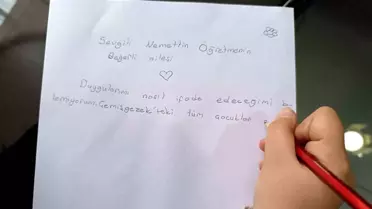 Sevgili Nemettin Öğretmenin
Değerli ailesi
Duygularımı nasıl ifade edeceğimi
bilemiyorum. Çemişgezek'teki tüm çocuklar